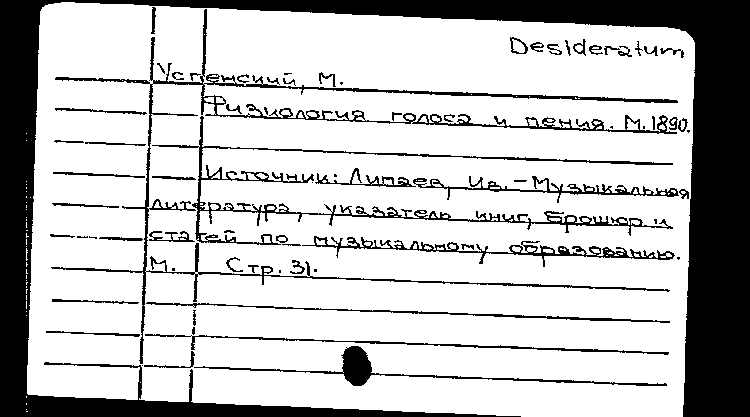 Desideratum
Успенский, М.
Физиология голоса и пения. М. 1890.
Источник: Липаев, Ив. - Музыкальная
литература, указатель книг, брошюр и
статей по музыкальному образованию.
М. Стр. 31.